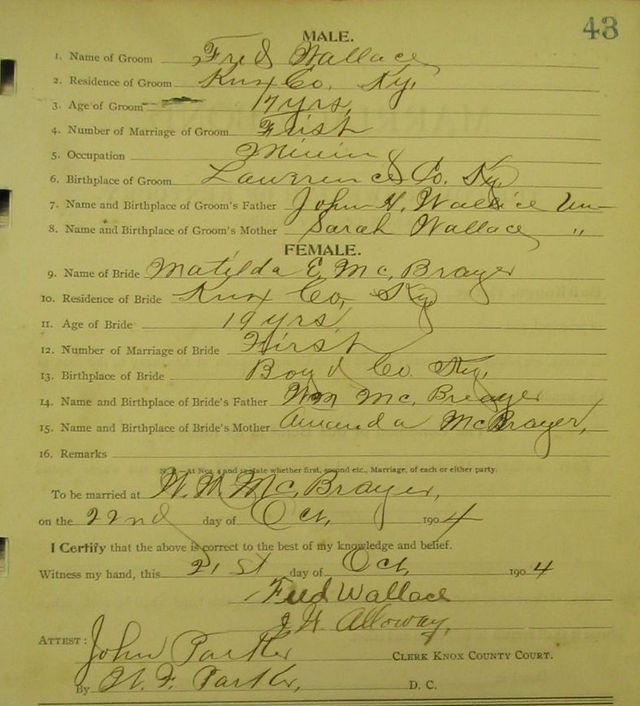 43
MALE.
1. Name of Groom Fred Wallace
2. Residence of Groom Knox Co. Ky.
3. Age of Groom 17 yrs,
4. Number of Marriage of Groom First
5. Occupation Mining
6. Birthplace of Groom Lawrence Co. Ky.
7. Name and Birthplace of Groom's Father John H. Wallace Un—
8. Name and Birthplace of Groom's Mother Sarah Wallace "
FEMALE.
9. Name of Bride Matilda E. Mc, Brayer
10. Residence of Bride Knox Co, Ky
11. Age of Bride 19 yrs,
12. Number of Marriage of Bride First
13. Birthplace of Bride Boyd Co. Ky.
14. Name and Birthplace of Bride's Father Wm Mc, Breayer
15. Name and Birthplace of Bride's Mother Amanda McBrayer,
16. Remarks
N. B.—At Nos. 4 and 12 state whether first, second etc., Marriage, of each or either party.
To be married at W. W. Mc, Brayer,
on the 22nd day of Oct, 1904
I Certify that the above is correct to the best of my knowledge and belief.
Witness my hand, this 21st day of Oct, 1904
Fred Wallace
J. H. Alloway,
ATTEST: John Parker CLERK KNOX COUNTY COURT.
By W. F. Parker, D. C.